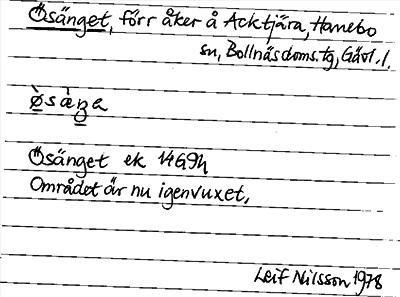 Ösänget, förr åker å Acktjära, Hanebo
sn, Bollnäs doms. tg, Gävl. l.
ø̀sæ̀ŋa
Ösänget ek 14G9h
Området är nu igenvuxet.
Leif Nilsson 1978